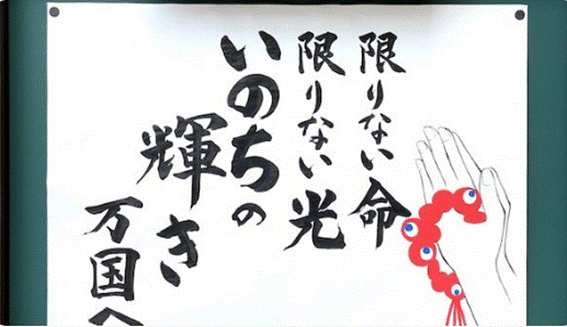 限りない命
限りない光
いのちの
輝き
万国へ